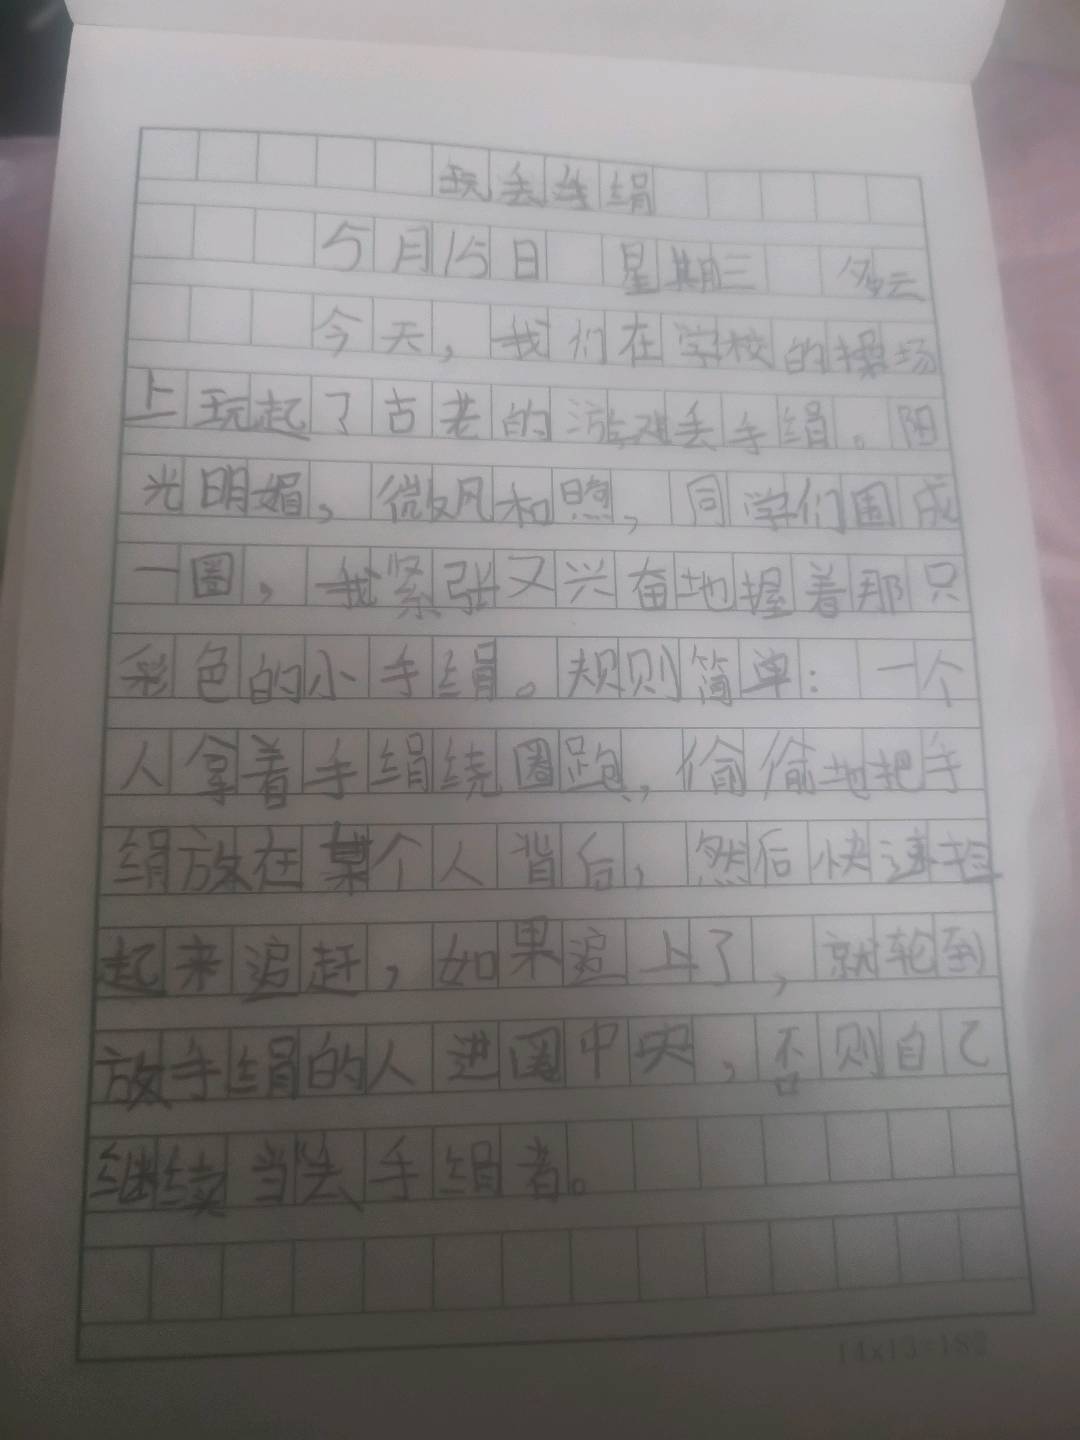 玩丢手绢
5月15日 星期三 多云
今天，我们在学校的操场
上玩起了古老的游戏丢手绢。阳
光明媚，微风和煦，同学们围成
一圈，我紧张又兴奋地握着那只
彩色的小手绢。规则简单：一个
人拿着手绢绕圈跑，偷偷地把手
绢放在某个人背后，然后快速站
起来追赶，如果追上了，就轮到
放手绢的人进圈中央，否则自己
继续当丢手绢者。
14x13=182